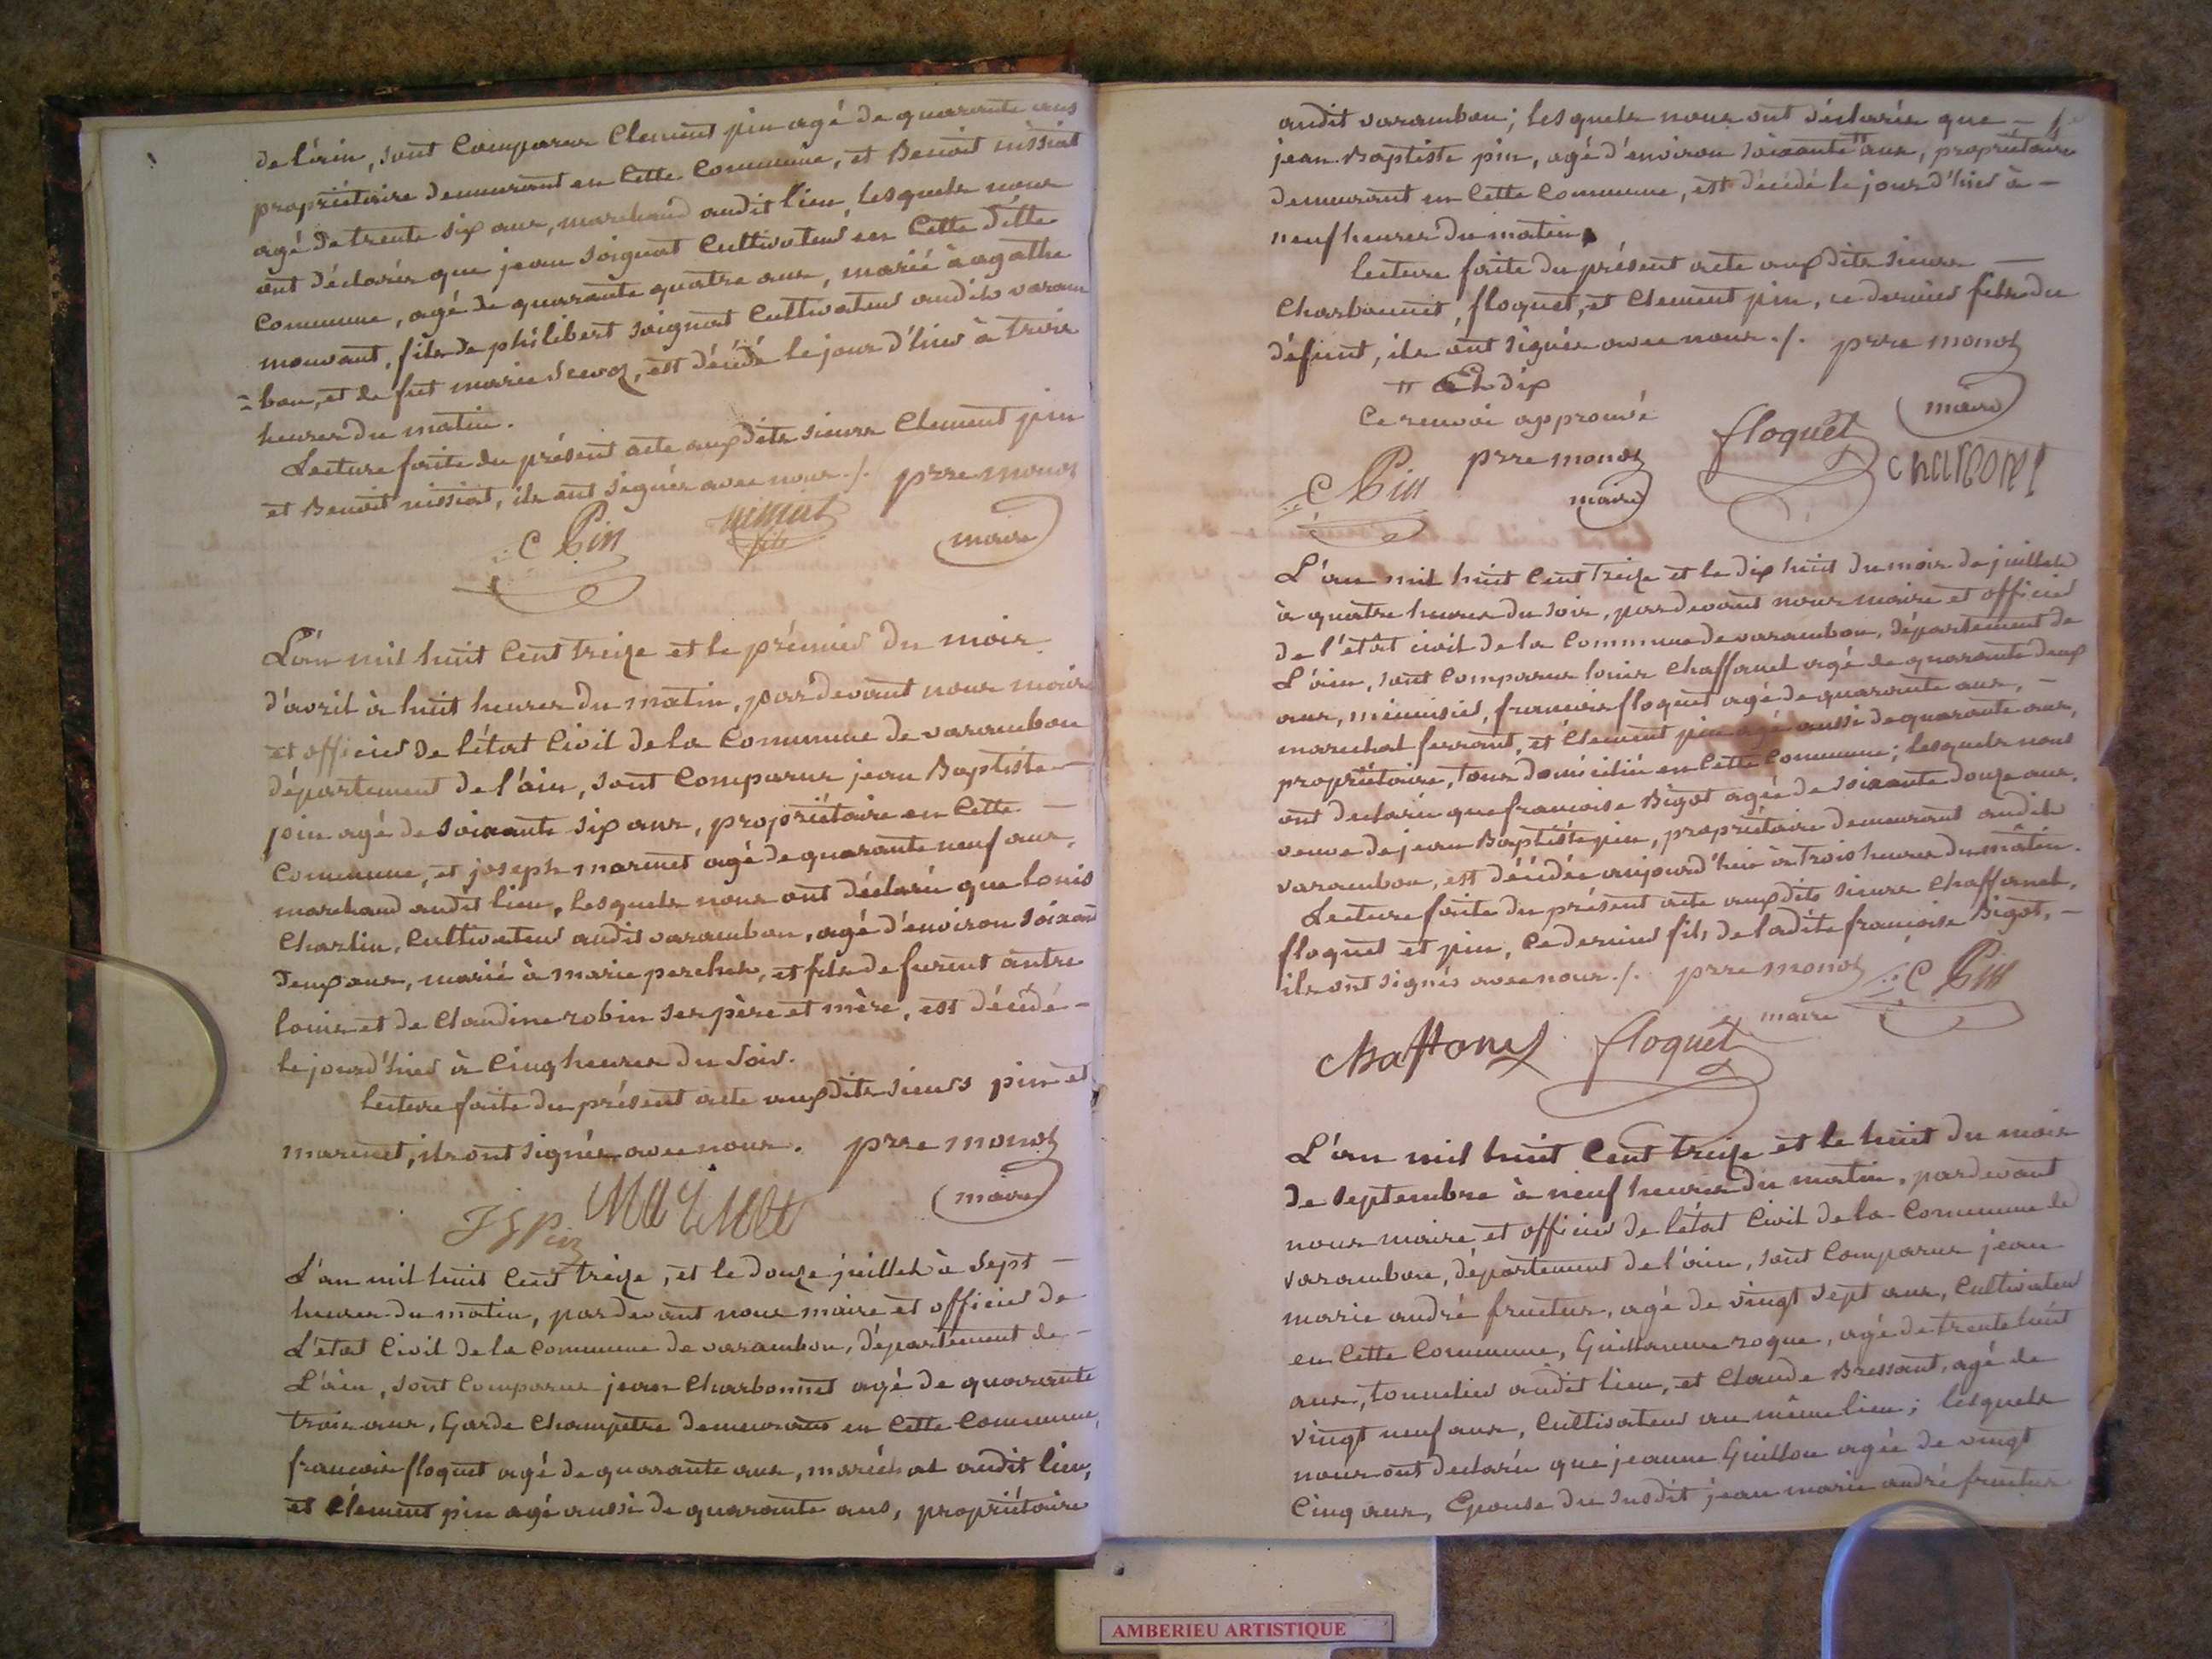 de l'ain, sont Comparus Clement pin agé de quarante ans
propriétaire demeurant en Cette Commune, et Benoit nissiat
agé de trente six ans, marchand audit lieu, lesquels nous
ont déclarés que jean soignat Cultivateur en Cette ditte
Commune, agé de quarante quatre ans, marié à agathe
mouvant, fils de philibert soignat Cultivateur audit varam
= bon, et de fut marie, est décédé le jour d'hier à trois
heures du matin.
Lecture faite du présent acte auxdits sieurs Clement pin
et Benoit nissiat, ils ont signés avec nous ./. prre monoz
C Pin nissiat fils maire
L'an mil huit Cent treize et le prémier du mois
d'avril à huit heures du matin, pardevant nous maire
et officier de l'état Civil de la Commune de varambon
département de l'ain, sont Comparus jean Baptiste
pin agé de soixante six ans, propriétaire en Cette
Commune, et joseph marinet agé de quarante neuf ans,
marchand audit lieu, lesquels nous ont déclarés que louis
Charlin, Cultivateur audit varambon, agé d'environ soixant
deux ans, marié à marie percher, et fils de furent autre
louis et de Claudine robin ses père et mère, est décédé -
le jourd'hier à Cinq heures du soir.
lecture faite du présent acte auxdits sieurs pin et
marinet, ils ont signés avec nous. prre monoz
J B Pin Marinet maire
L'an mil huit Cent treize, et le douze juillet à sept
heures du matin, pardevant nous maire et officier de
L'état Civil de la Commune de varambon, département de -
L'ain, sont Comparus jean Charbonnet agé de quarante
trois ans, Garde Champêtre demeurant en Cette Commune,
francois floquet agé de quarante ans, maréchal audit lieu,
et Clement pin agé aussi de quarante ans, propriétaire
audit varambon; lesquels nous ont déclarés que -
jean Baptiste pin, agé d'environ soixante " ans, propriétaire
demeurant en Cette Commune, est décédé le jour d'hier à -
neuf heures du matin.
lecture faite du présent acte auxdits sieurs
Charbonnet, floquet, et Clement pin, ce dernier fils du
défunt, ils ont signés avec nous ./. prre monoz
" Et dix maire
Ce renvoi approuvé
C Pin prre monoz maire floquet charbonet
L'an mil huit Cent treize et le dix huit du mois de juillet
à quatre heures du soir, pardevant nous maire et officier
de l'état civil de la Commune de varambon, département de
L'ain, sont Comparus louis Chaffanel agé de quarante deux
ans, menuisier, francois floquet agé de quarante ans, -
marechal ferrant, et Clement pin agé aussi de quarante ans,
propriétaire, tous domiciliés en Cette Commune; lesquels nous
ont declarés que francoise Bigot agée de soixante douze ans,
veuve de jean Baptiste pin, propriétaire demeurant audit
varambon, est décédée aujourd'hui à trois heures du matin.
Lecture faite du présent acte auxdits sieurs Chaffanel,
floquet et pin, Ce dernier fils de ladite francoise Bigot, -
ils ont signés avec nous ./. prre monoz C Pin
Chaffanel floquet maire
L'an mil huit Cent treize et le huit du mois
de septembre à neuf heures du matin, pardevant
nous maire et officier de l'état Civil de la Commune de
varambon, département de l'ain, sont Comparus jean
marie andré fructus, agé de vingt sept ans, Cultivateur
en Cette Commune, Guillaume roque, agé de trente huit
ans, tonnelier audit lieu, et Claude Bressant, agé de
vingt neuf ans, Cultivateur au même lieu; lesquels
nous ont declarés que jeanne Guillon agée de vingt
Cinq ans, Epouse du susdit jean marie andré fructus
AMBERIEU ARTISTIQUE